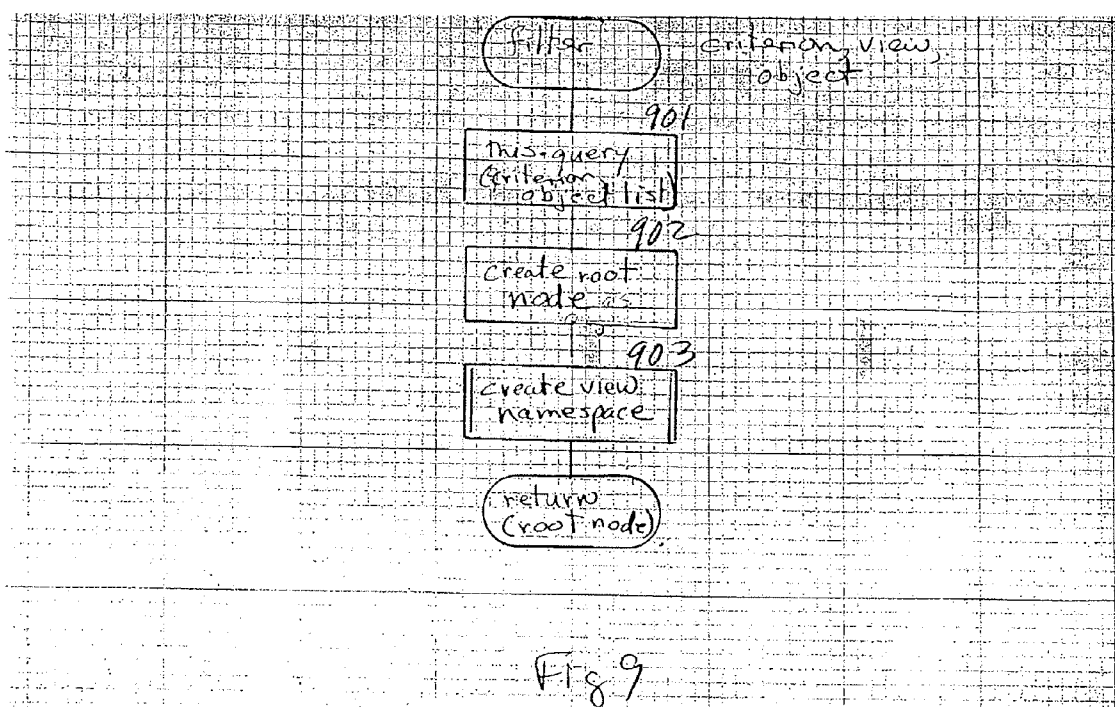 filter
criterion, view,
object
901
this.query
(criterion,
object list)
902
create root
node as
903
create view
namespace
return
(root node)
Fig 9